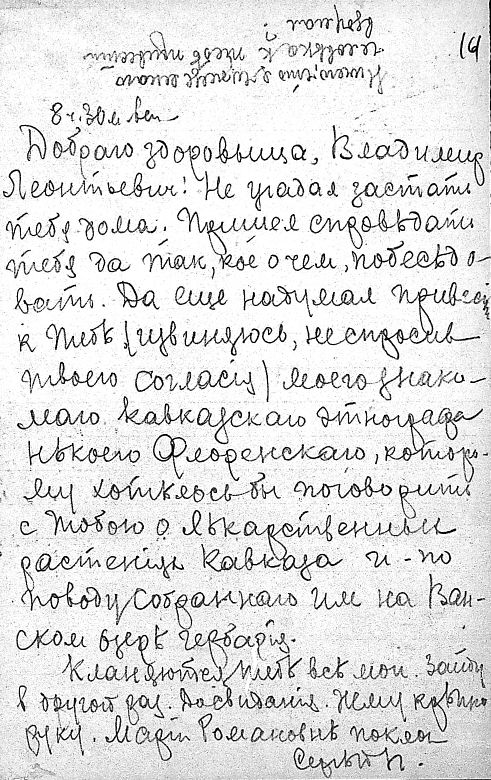 14
8 ч. 30 м веч
Добраго здоровьица, Владимир
Леонтьевич! Не угадал застать
тебя дома. Пришел спровѣдать
тебя да так, кое о чем, побесѣдо-
вать. Да еще надумал привезти
к тебѣ (извиняюсь, не спросив
твоего согласія) моего знако-
маго кавказскаго этнографа
нѣкоего Флоренскаго, которо-
му хотѣлось бы поговорить
с тобою о лѣкарственных
растеніях Кавказа и по
поводу собраннаго им на Ван-
ском озерѣ гербарія.
Кланяются тебѣ всѣ мои. Зайду
в другой раз. Досвиданія. Жму крѣпко
руку. Маріи Романовнѣ поклон